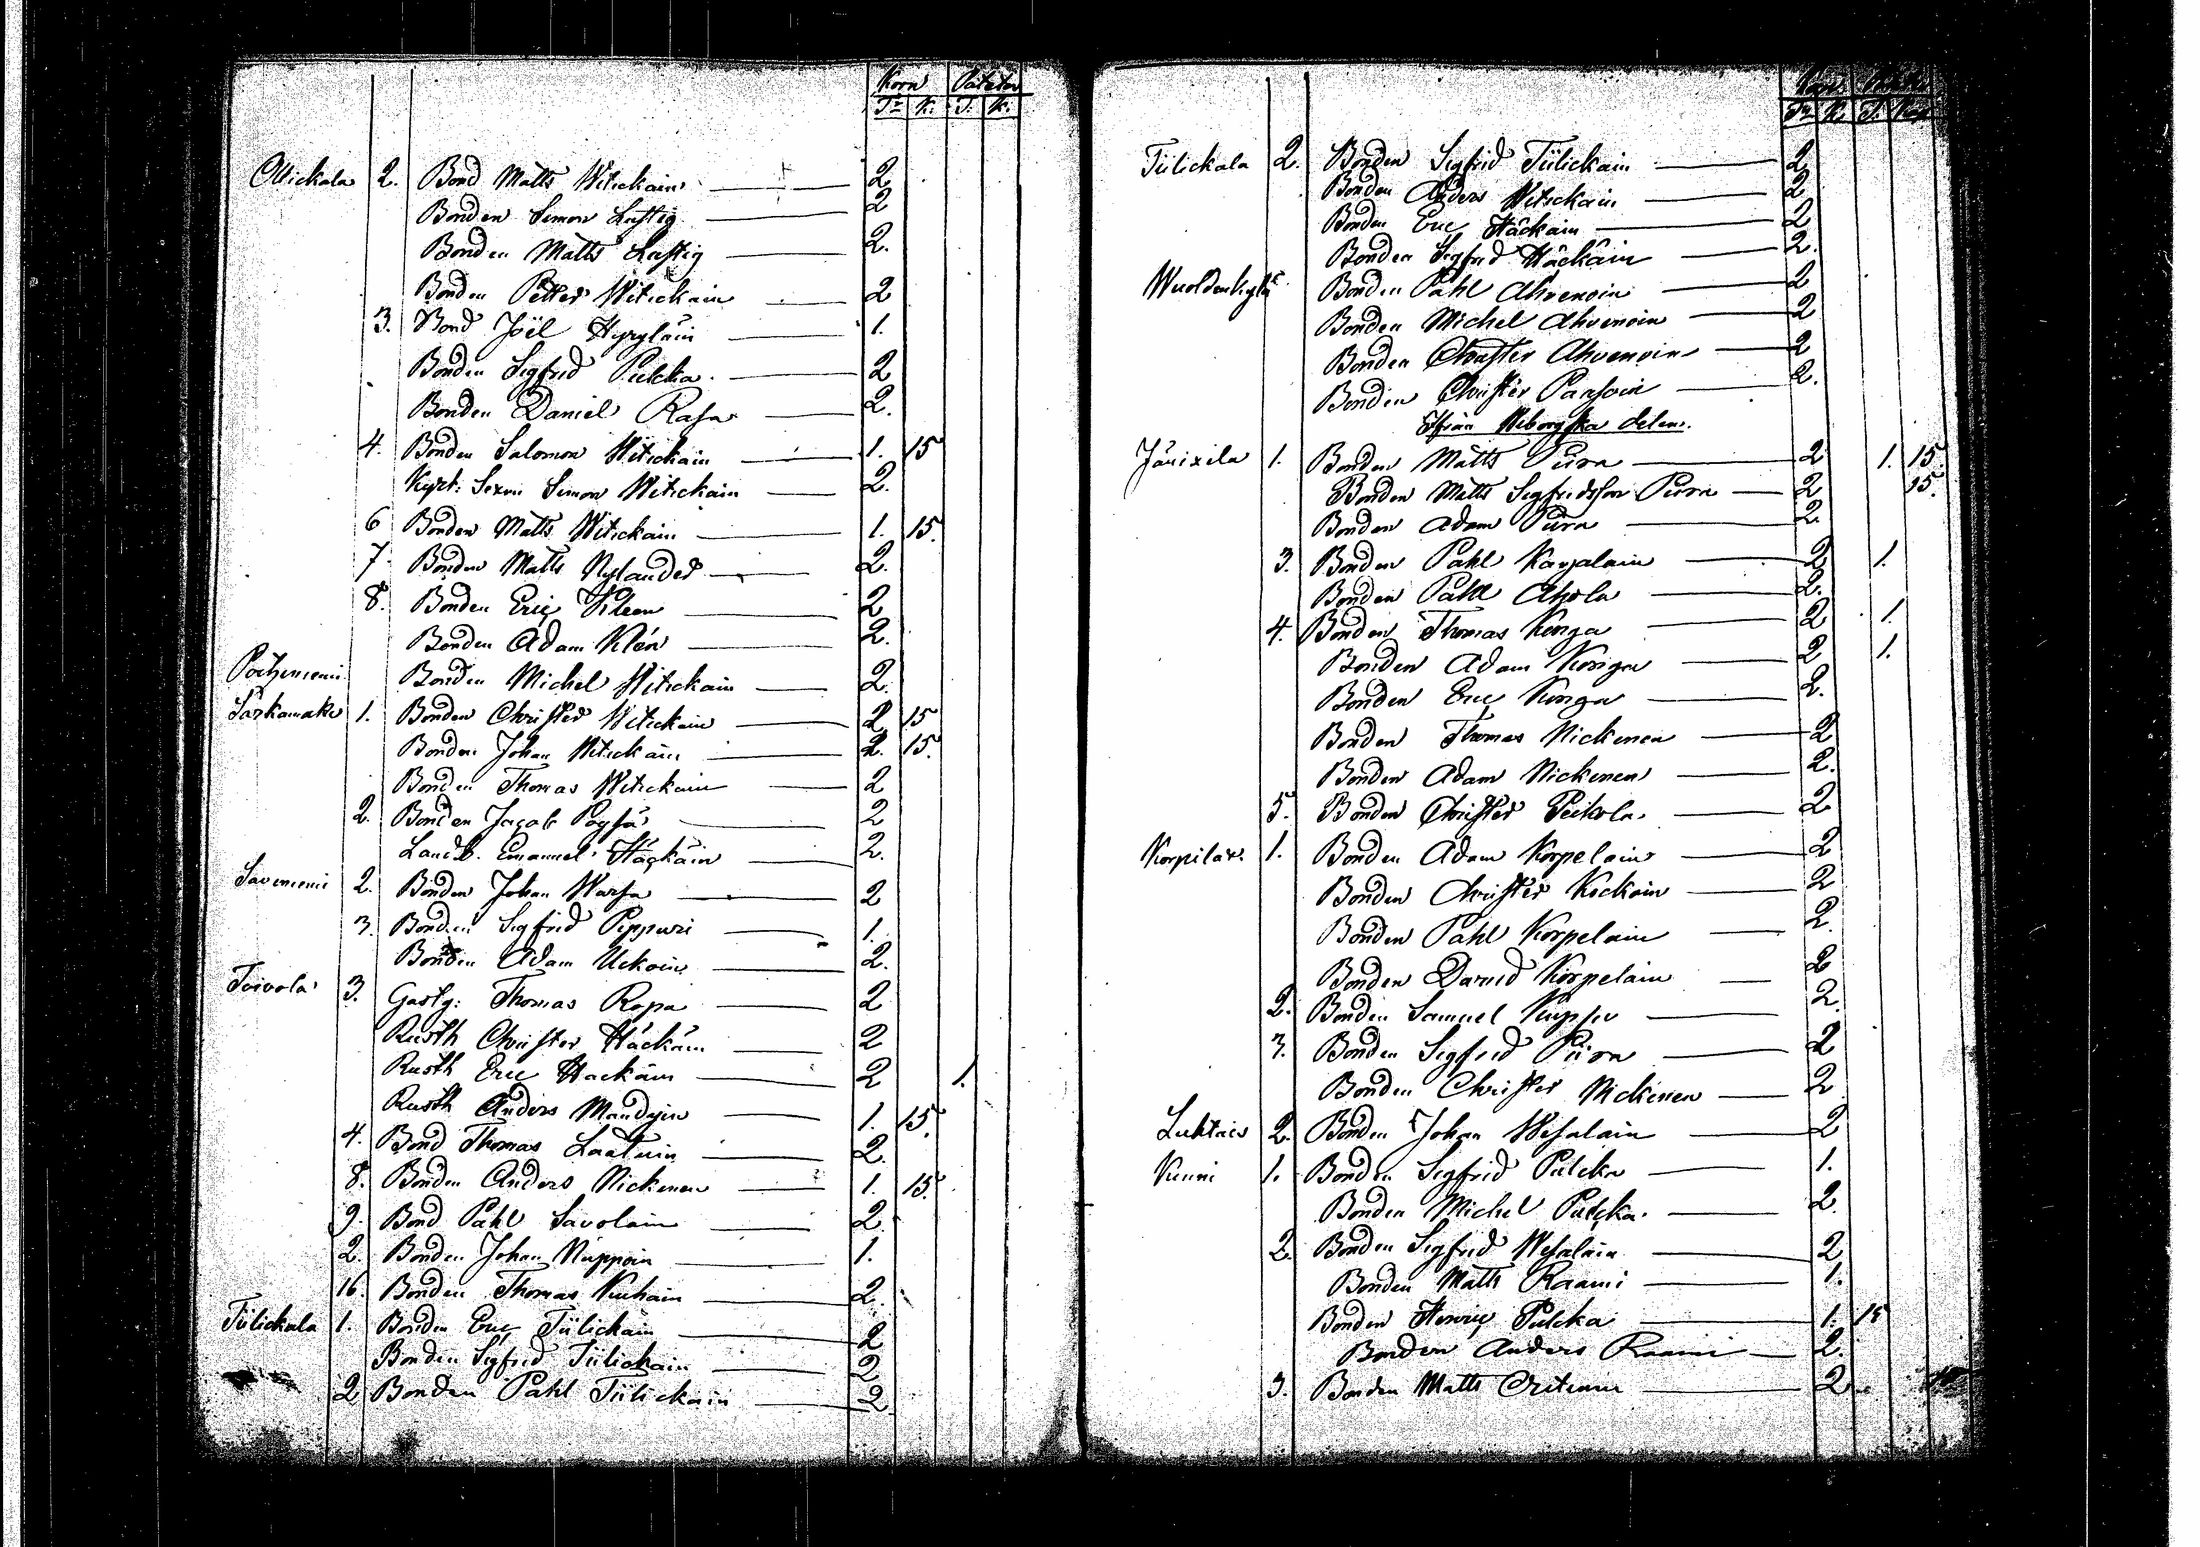 Korn Pateter
Tr K: T: K:
Ollickala 2. Bond Matts Witickain 2
Bonden Simon Lustig 2
Bonden Matts Lustig 2.
Bonden Petter Witickain 2
3. Bond Joël Hyryläin 1.
Bonden Sigfrid Pulcka 2
Bonden Daniel Rasa 2.
4. Bonden Salomon Witickain 1. 15
Kyrk: Sexm Simon Witickain 2.
6 Bonden Matts Witickain 1. 15.
7. Bonden Matts Nylander 2.
8. Bonden Eric Kleen 2
Bonden Adam Klén 2.
Pochjeniemi Bonden Michel Witickain 2.
Sarkamäki 1. Bonden Christer Witickain 2 15
Bonden Johan Witickain 2. 15.
Bonden Thomas Witickain 2
2. Bonden Jacob Pöysä 2
Landb. Emanuel Häckäin 2.
Savoniemi 2. Bonden Johan Warsa 2
3. Bonden Sigfrid Pippuri 1.
Bonden Adam Uckoin 2.
Toivola 3. Gastg: Thomas Ropa 2
Rusth Christer Häckäin 2
Rusth Eric Hackäin 2 1.
Rusth Anders Mandujin 1. 15.
4. Bond Thomas Laatuin 2.
8. Bonden Anders Nickenen 1. 15.
9. Bond Pahl Savolain 2
2. Bonden Johan Nuppoin 1.
16. Bonden Thomas Kuhain 2.
Tiilickala 1. Bonden Eric Tiilickain 2
Bonden Sigfrid Tiilickain 2
2 Bonden Pahl Tiilickain 2
Korn
Tr K. T. Kap
Tiilickala 2. Bonden Sigfrid Tiilickain 2
Bonden Anders Witickain 2
Bonden Eric Häckäin 2
Bonden Sigfrid Häckäin 2.
Wuoldenkylä Bonden Pahl Ahvenoin 2
Bonden Michel Ahvenoin 2
Bonden Christer Ahvenoin 2
Bonden Christer Parssoin 2.
Ifrån Wiborgska delen.
Järixila 1. Bonden Matts Pura 2 1. 15
Bonden Matts Sigfridsson Pura 2 15.
Bonden Adam Pura 2
3. Bonden Pahl Karjalain 2 1.
Bonden Pahl Ahola 2.
4. Bonden Thomas Konga 2 1.
Bonden Adam Konga 2 1.
Bonden Eric Konga 2.
Bonden Thomas Nickenen 2
Bonden Adam Nickenen 2.
5. Bonden Christer Peckola 2
Korpilax. 1. Bonden Adam Korpelain 2
Bonden Christer Kockoin 2
Bonden Pahl Korpelain 2.
Bonden David Korpelain 2
2. Bonden Samuel 2.
3. Bonden Sigfrid Pura 2
Bonden Christer Nickenen 2
Luhtais 2. Bonden Johan Wesalain 2
Kunni 1. Bonden Sigfrid Pulcka 1.
Bonden Michel Pulcka. 2
2. Bonden Sigfrid Wesalain 2
Bonden Matts Raami 1.
Bonden Henric Pulcka 1. 15
Bonden Anders Raami 2.
3. Bonden Matts 2